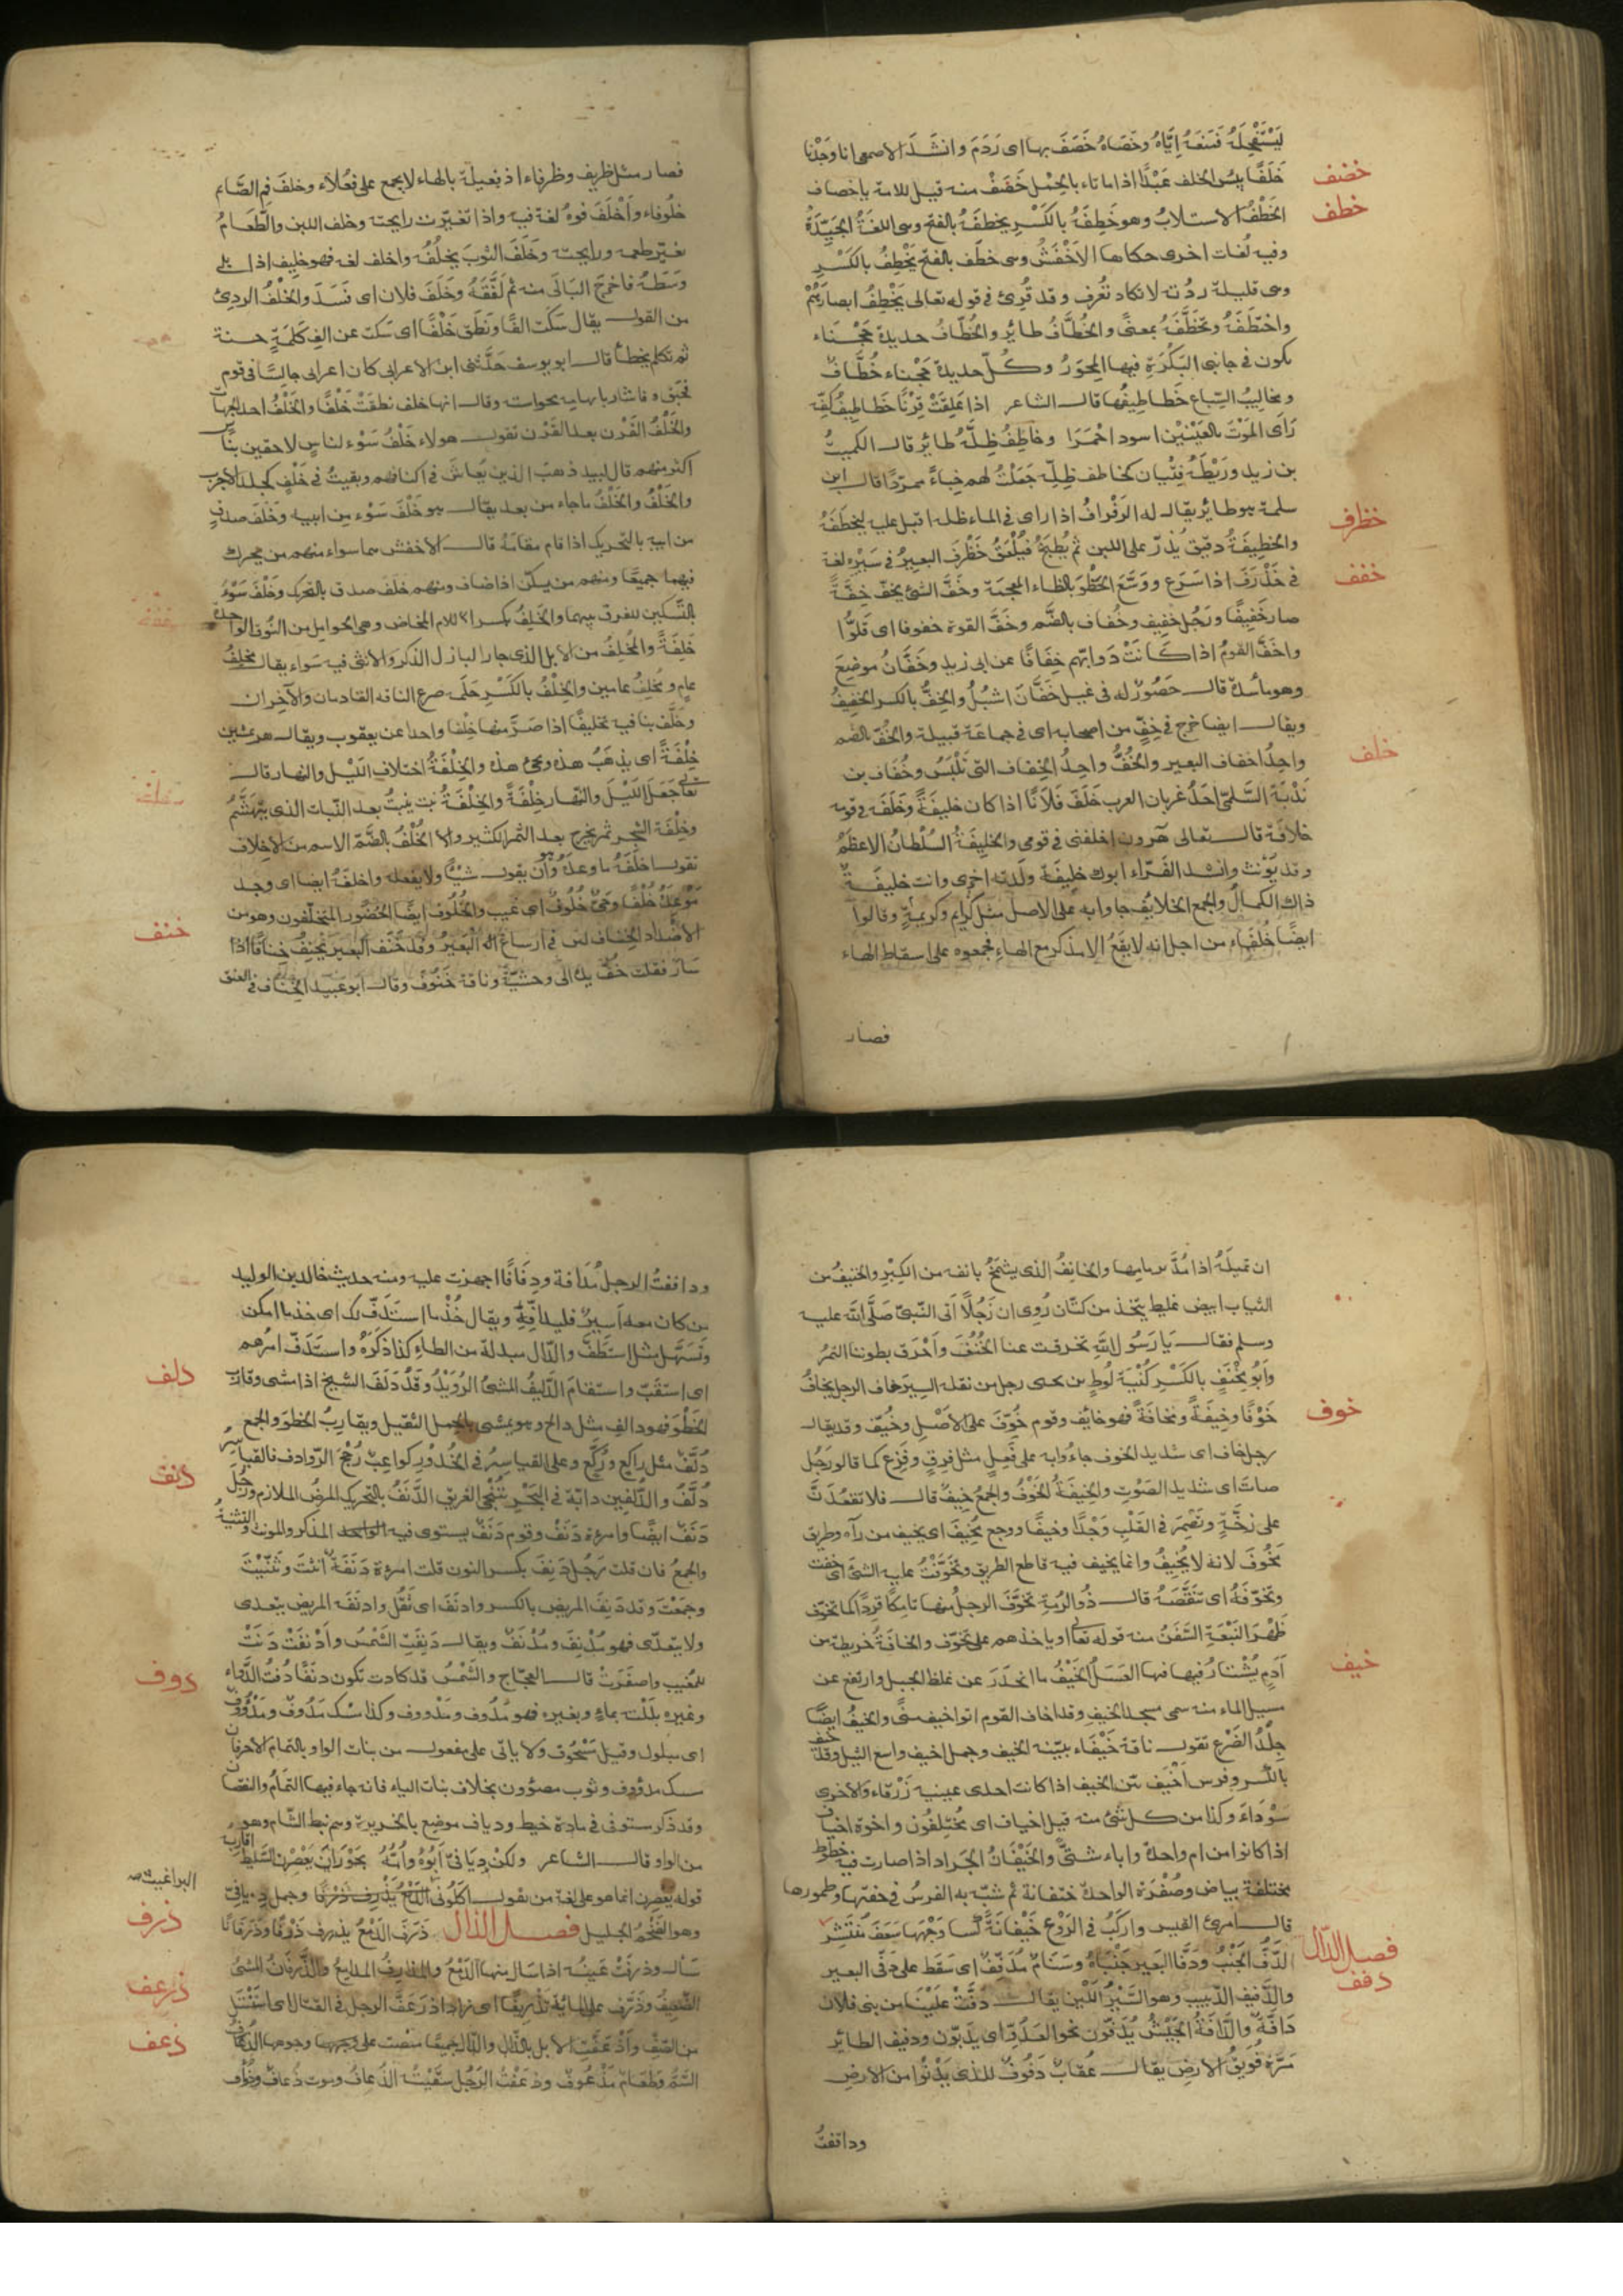 ليستفحله فمنعه إيّاه وخصاه خَضَفَ بها اى رَدَمَ وانشد الاصمعى انا وجدنا
خضف
خَلَفًا بئس الخلف عَبْدًا اذا ما ناء بالحِمْل خَضَفْ منه قيل للامة يا خضاف
خطف
الخَطْفُ الاستلابُ وهو خَطِفَهُ بالكَسْرِ يخطَفُهُ بالفتح وهى اللغةُ الجيّدةُ
وفيه لُغات اخرى حكاها الاَخْفَشُ وهى خطَف بالفتح يَخْطِفُ بالكَسْرِ
وهى قليلة ردُئة لا تكاد تُعْرف وقد قُرِئ فى قوله تعالى يَخْطِفُ ابصارَهُمْ
واختطَفَهُ وتَخَطَّفَهُ بمعنىً والخُطَّافُ طائر والخُطّافُ حديدة حَجْناء
تكون فى جانبى البَكْرَةِ فيها المِحْوَرُ وكُلّ حديدة حَجْناء خُطَّاف
ومخاليبُ السِّباع خَطاطيفُها قال الشاعر اذا عَلِقَتْ قِرْنًا خَطاطِيفُ كَفّه
رَأى المَوْتَ بالعَيْنَيْنِ اسود احْمَرَا وخاطِفُ ظِلِّه طائر قال الكميتُ
بن زيد ورَيْطَة فِتْيان كخاطف ظِلِّه جَعَلْتُ لهم خِباءً ممرّدًا قال ابن
سلمة هو طائر يقال له الرَفْرافُ اذا راى فى الماء ظله اقبل عليه ليخطفَهُ
خظرف
والخطيفَةُ دقيق يُذَرّ على اللبن ثم يُطبَخُ فيُلْعَقُ خَظْرَفَ البعيرُ فى سَيْرِه لغة
خفف
فى خَذْرَفَ اذا سَرَع ووَسَّعَ الخَطْوَ بالظاء المعجمة وخَفَّ الشئُ يخفّ خِفَّةً
صار خَفِيفًا ورَجُل خفيف وخُفاف بالضّم وخَفَّ القوم خفوفا اى قَلُّوا
واخفَّ القومُ اذا كَانَتْ دَوابّهم خِفَافًا عن ابى زيد وخَفَّانُ موضِعَ
وهو مأسدة قال حَصُورٌ له فى غيل خَفَّانَ اشبُلُ والخِفُّ بالكسر الخَفِيفُ
ويقال ايضا خرج فى خِفٍّ من اصحابه اى فى جماعَة قبيلة والخُفّ بالضم
خلف
واحِدُ اخفاف البعير والخُفُّ واحِدُ الخِفاف التى تُلْبَسُ وخُفَاف بن
نَدْبَة السُّلَمىّ احَدُ غربان العرب خَلَفَ فلانًا اذا كان خليفَةً وخَلَفَه فى قومه
خلافة قال تعالى هرون اخلفنى فى قومى والخليفَةُ السُلْطانُ الاعظَمُ
وقد يؤنث وانشد الفَرّاء ابوك خليفَة ولَدته اخرى وانت خليفَة
ذاك الكمالُ والجمع الخلايفُ جاوا به على الاصل مثل كرايم وكريمةٍ وقالوا
ايضًا خُلَفَاء من اجل انه لا يقَعُ الا مذكر مع الهاء فجمعوه على اسقاط الهاء
فصار
فصار مثل ظريف وظرفاء اذ فعيلة بالهاء لا يجمع على فُعلاَء وخلفَ فم الصّايم
خلُوفاء واَخْلَفَ فوهُ لغة فيه واذا تغيّرت رايحته وخلف اللبن والطّعامُ
تغيّر طعمه ورايحته وخَلَفَ الثوبَ يخلُفُه واخلف لغه فهو خليف اذا بلى
وسَطهُ فاخرجَ البَالَى منه ثم لَفَّقَهُ وخَلَفَ فلان اى فَسَدَ والخَلْفُ الردِىُ
من القول يقال سَكَتَ الفًا ونَطَقَ خَلْفًا اى سَكتَ عن الفِ كَلِمَةٍ حسنة
ثم تكلم بخطأ قال ابو يوسف حَدَّثنى ابن الاعرابى كان اعرابى جالسًا فى قوم
فحَبَق فاشار بابهامه نحو استه وقال انها خلف نطقَتْ خَلْفًا والخَلْفُ احد الجهات
والخَلْفُ القَرْن بعد القَرْن تقول هولاء خَلْفُ سَوْء لناسٍ لاحقين بناس
اكثر منهم قال لبيد ذهبَ الذين يُعاشَ فى اكنافهم وبقيتُ فى خَلْفٍ كجلد الاجرب
والخَلْفُ والخَلَفُ ماجاء من بعد يقال هو خَلْفُ سَوْء من ابيه وخَلَف صدقٍ
من ابيه بالتحريك اذا قام مقامَهُ قال الاَخفش هما سواء منهم من يحرك
فيهما جميعًا ومنهم من يسكّن اذا ضاف ومنهم خلَف صدق بالتحرك وخَلْفَ سَوْءُ
بالتَّسكين للفرق بينهما والخَلِفُ بكسر اللام المخاض وهى الحوامل من النُوق الواحدة
خَلِفَةً والمُخْلِفُ من الابل الذى جاز البازل الذكر والانثى فيه سَواء يقال مخلف
عام ومخلفُ عامين والخِلْفُ بالكَسْر حَلَمَة ضرع الناقه القادمان والآخران
وخَلَّف بناقته تخليفًا اذا صَرَّ منها خِلْفا واحدا عن يعقوب ويقال هن يمشين
خِلْفَةً اى يذهَبُ هذه ويجئ هذه والخِلْفَةُ اختلاف اللَيْل والنهار قال
تعالى جَعَلَ اللَيْلَ والنهار خِلْفَةً والخِلْفَةُ نبت ينبتُ بعد النّبات الذى يتهشّمُ
وخِلْفَة الشجر ثمر يخرج بعد الثمر الكثير والخُلْفُ بالضّمّ الاسم من الاخلاف
تقول اخلَفَهُ ما وعدَهُ وهو اَنْ يقول شيئًا ولا يفعله واخلفَهُ ايضا اى وجد
مَوْعِدَهُ خُلْفًا وحَىّ خُلُوفٌ اى غيب والخُلُوف ايضًا الحُضُور المتخلّفون وهو من
خنف
الاضداد الخِناف لين فى ارساغ البَعيرُ وقد خَنَفَ البعير يخنِفُ خنافًا اذا
سار فقلب خُفّ يده الى وحشيّهِ وناقة خَنُوفٌ وقال ابو عبيد الخناف فى العنق
ان تميلَهُ اذا مُدّ بزمامِها والخانِفُ الذى يشمَخُ بانفه من الكِبْر والخنيفُ من
الثياب ابيض غليط يتّخذ من كتّان رُوى ان رَجُلاً اَتَى النّبىّ صَلَّى اللّه عليه
وسلم فقال يا رَسُول اللّهِ تخرقت عنا الخُنُفُ واَحْرَق بطوننا التمرُ
واَبُو مِخْنَفٍ بالكَسْرِ كُنْيَة لُوطِ بن يحيى رجل من نقلة السِيَر خاف الرجل يخافُ
خوف
خَوْفًا وخِيفَةً ومخافَةً فهو خائف وقوم خُوّفَ على الاَصْلِ وخُيّف وقد يقال
رجل خاف اى شديد الخوف جاءُوا به على فَعِلٍ مثل فرِقٍ وفَزِع كما قالو رَجُل
صات اى شديد الصَوْتِ والخِيفَةُ الخَوْفُ والجمعُ خِيفٌ قال فلا تقعُدَنَّ
على زَخَّةٍ وتُضْمِرَ فى القَلْبِ وَجْدًا وخيفًا ووجع مُخِيف اى يخيف من رآه وطريق
مَخُوف لانه لا يُخِيفُ وانما يخيف فيه قاطع الطريق وتَخَوّفْتُ عليه الشئَ اى خفت
وتخوّفَهُ اى تنَقَّصَهُ قال ذُو الرُمّةِ تخوَّفَ الرحلُ منها تامِكًا قَرِدًا كما تخوّف
ظَهْرَ النَبْعَةِ السَفَنُ منه قوله تعالى او ياخذهم على تخوّف والخافَةُ خريطة من
خيف
اَدَمٍ يُشْتار فيها العَسَلُ الخَيْفُ ما انحَدَرَ عن غلظ الجبل وارتفع عن
مسيل الماء منه سمى مسجد الخيف وقد اخاف القوم اتوا خيف منىً والخيفُ ايضًا
جِلْدُ الضّرْع تقول ناقة خَيْفَاء بيّنة الخيف وجمل اخيف واسع الثيل وقد خيف
بالكسر وفرس اَخْيَف بيّن الخيف اذا كانت احدى عينيه زَرْقَاء والاخرى
سَوْدَاءَ وكذا من كل شئ منه قيل اخياف اى مُختَلِفُون واخوة اخياف
اذا كانوا من ام واحدة واباء شتىّ والخَيْفَانُ الجَراد اذا صارت فيه خطوط
مختلفة بياض وصُفْرَة الواحدة خيفانة ثم شبّه به الفرسُ فى خفتها وطمورها
قال امرئ القيس واركَبُ فى الرَوْع خَيْفانَةً كسا وَجْهَها سَعَفَ مُنْتَشِرْ
فصل الدّال
دفف
الدَّفُّ الجَنْبُ ودَفَّا البَعير جَنْبَاهُ وسَنَامٌ مُدَفّفٌ اى سَقَط على دَفّى البعير
والدَّفيف الدّبيب وهو السَّيْرُ اللَّيْن يقال دَفَّتْ عَلَيْنَا من بنى فلان
دَافّة والدَّافّةُ الجَيْشُ يُدَفّون نحو العَدُوّ اى يَدِبّون ودفيف الطائر
مَرّهُ فُوَيْقَ الارض يقال عُقابٌ دَفُوفٌ للذى يَدْنُوا من الارض
ودافقتُ
ودافَفتُ الرجل مُدَافة ودِفَافًا اجهزت عليه ومنه حديث خالد بن الوليد
من كان معه اَسيرٌ فليدافِّهِ ويقال خُذْ ما استَدَفّ لك اى خذ ما امكن
وتَسَهَّل مثل استَطَفّ والدّال مبدلة من الطاء كذا ذكَرَهُ واستَدَفّ امرُهم
دلف
اى استَتَبّ واستقامَ الدَّلِيفُ المشىُ الرُوَيْدُ وقَدْ دَلَفَ الشّيخ اذا مشى وقارب
الخَطْوَ فهو دالف مثل دالح وهو يمشى بالحِمل الثقيل ويقاربُ الخطوَ والجمع
دُلَّفٌ مثل راكِعٍ ورُكَّعٍ وعلى القياسِر فى الخُدُور كواعبٌ رُجُحُ الرّوادف فالقياسرُ
دنف
دُلَّفُ والدُّلفين دابّة فى البَحْرِ تُنْجِى الغريق الدَّنَفُ بالتحريك المرضُ الملازم ورَجُل
دَنَفٌ ايضًا وامرءة دَنَفٌ وقوم دَنَفٌ يستوى فيه الواحد المذكر والمونث والتثنية
والجمعُ فان قلت رَجُل دَنِفٌ بكسر النون قلت امرءة دَنِفَة انثت وثَنّيْتَ
وجمعْتَ وقد دَنِفَ المريض بالكسر وادنَفَ اى ثَقُل وادنَفَه المريض يتعدى
ولا يتعدّى فهو مُدْنِف ومُدْنَفٌ ويقال دَنِفَتِ الشّمسُ واَدْنَفَتْ دَنَتْ
دوف
للمَغِيب واصفَرَتْ قال العجّاج والشَمْسُ قد كادت تكون دنَفًا دُفتُ الدَّواء
وغيره بلَلْتَه بماءٍ وبغيره فهو مَدُوف ومَدْووف وكذا مسك مَدُوف ومَدْوُوفٌ
اى مبلول وقيل مَسْحُوق ولا ياتى على مفعول من بنات الواو بالتمام الا حرفان
مسك مدوُوف وثوب مصوُون بخلاف بنات الياء فانه جاء فيها التمامُ والنقصان
وقد ذكر مستوفى فى مادة خيط ودياف موضع بالجزيرة وهم نبط الشّام وهو
من الواو قال الشاعر ولكن دِيَافىّ اَبُوهُ واُمّهُ بِحَوْرَانَ يَعْصِرنَ السَّليطَ اقاربُه
قوله يعْصِرن انما هو على لغة من يقول اكَلُونى البراغيث وجمل دِيافىّ
ذرف
وهو الضَّخْم الجليل فصل الذال ذَرَفَ الدّمعُ يذرِف ذَرْفًا وذَرَفانًا
سَال وذرفَتْ عَينُه اذا سَال منها الدَّمْعُ والمذارفُ المدامِعُ والذَّرفَانُ المشىُ
ذرعف
الضَّعِيفُ وذَرّف على المايَة تذريفًا اى زاد اذرَعَفَّ الرجل فى القتال اى استَنْتَل
ذعف
من الصّفّ واَذْرَعَفّتِ الابل بالذّال والدّال جميعًا مضَت على وجهها وجوهها الذُعافُ
السّمّ وطعَامٌ مَذْعُوف وذَعَفْتُ الرّجُل سقيْتُه الذعاف وموت ذُعاف وذُؤاف